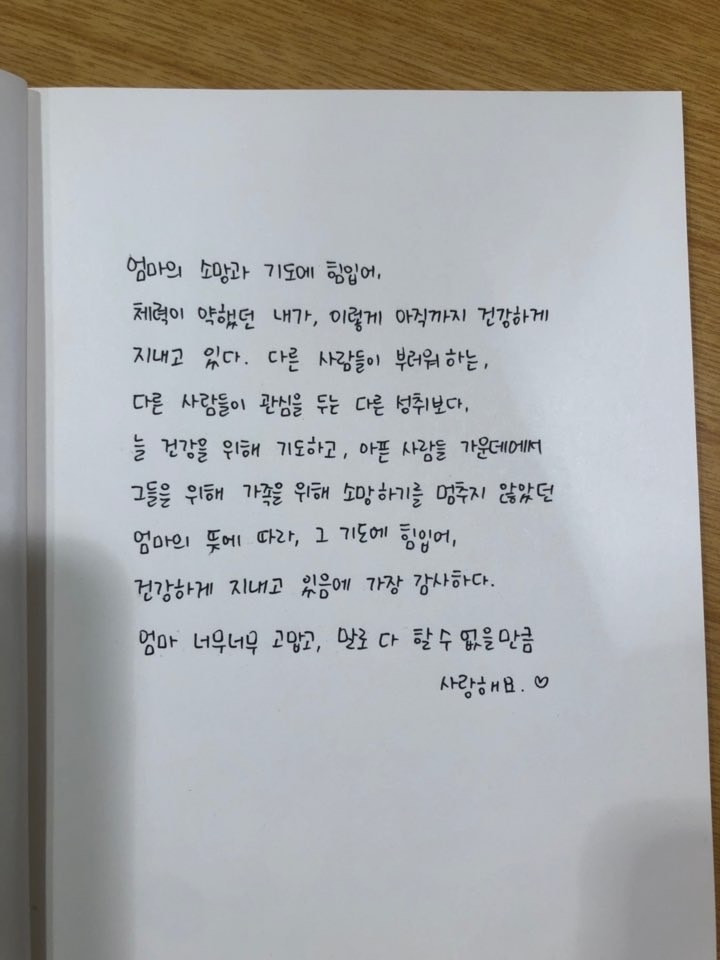 엄마의 소망과 기도에 힘입어,
체력이 약했던 내가, 이렇게 아직까지 건강하게
지내고 있다. 다른 사람들이 부러워하는,
다른 사람들이 관심을 두는 다른 성취보다,
늘 건강을 위해 기도하고, 아픈 사람들 가운데에서
그들을 위해 가족을 위해 소망하기를 멈추지 않았던
엄마의 뜻에 따라, 그 기도에 힘입어,
건강하게 지내고 있음에 가장 감사하다.
엄마 너무너무 고맙고, 말로 다 할 수 없을만큼
사랑해요. ♡